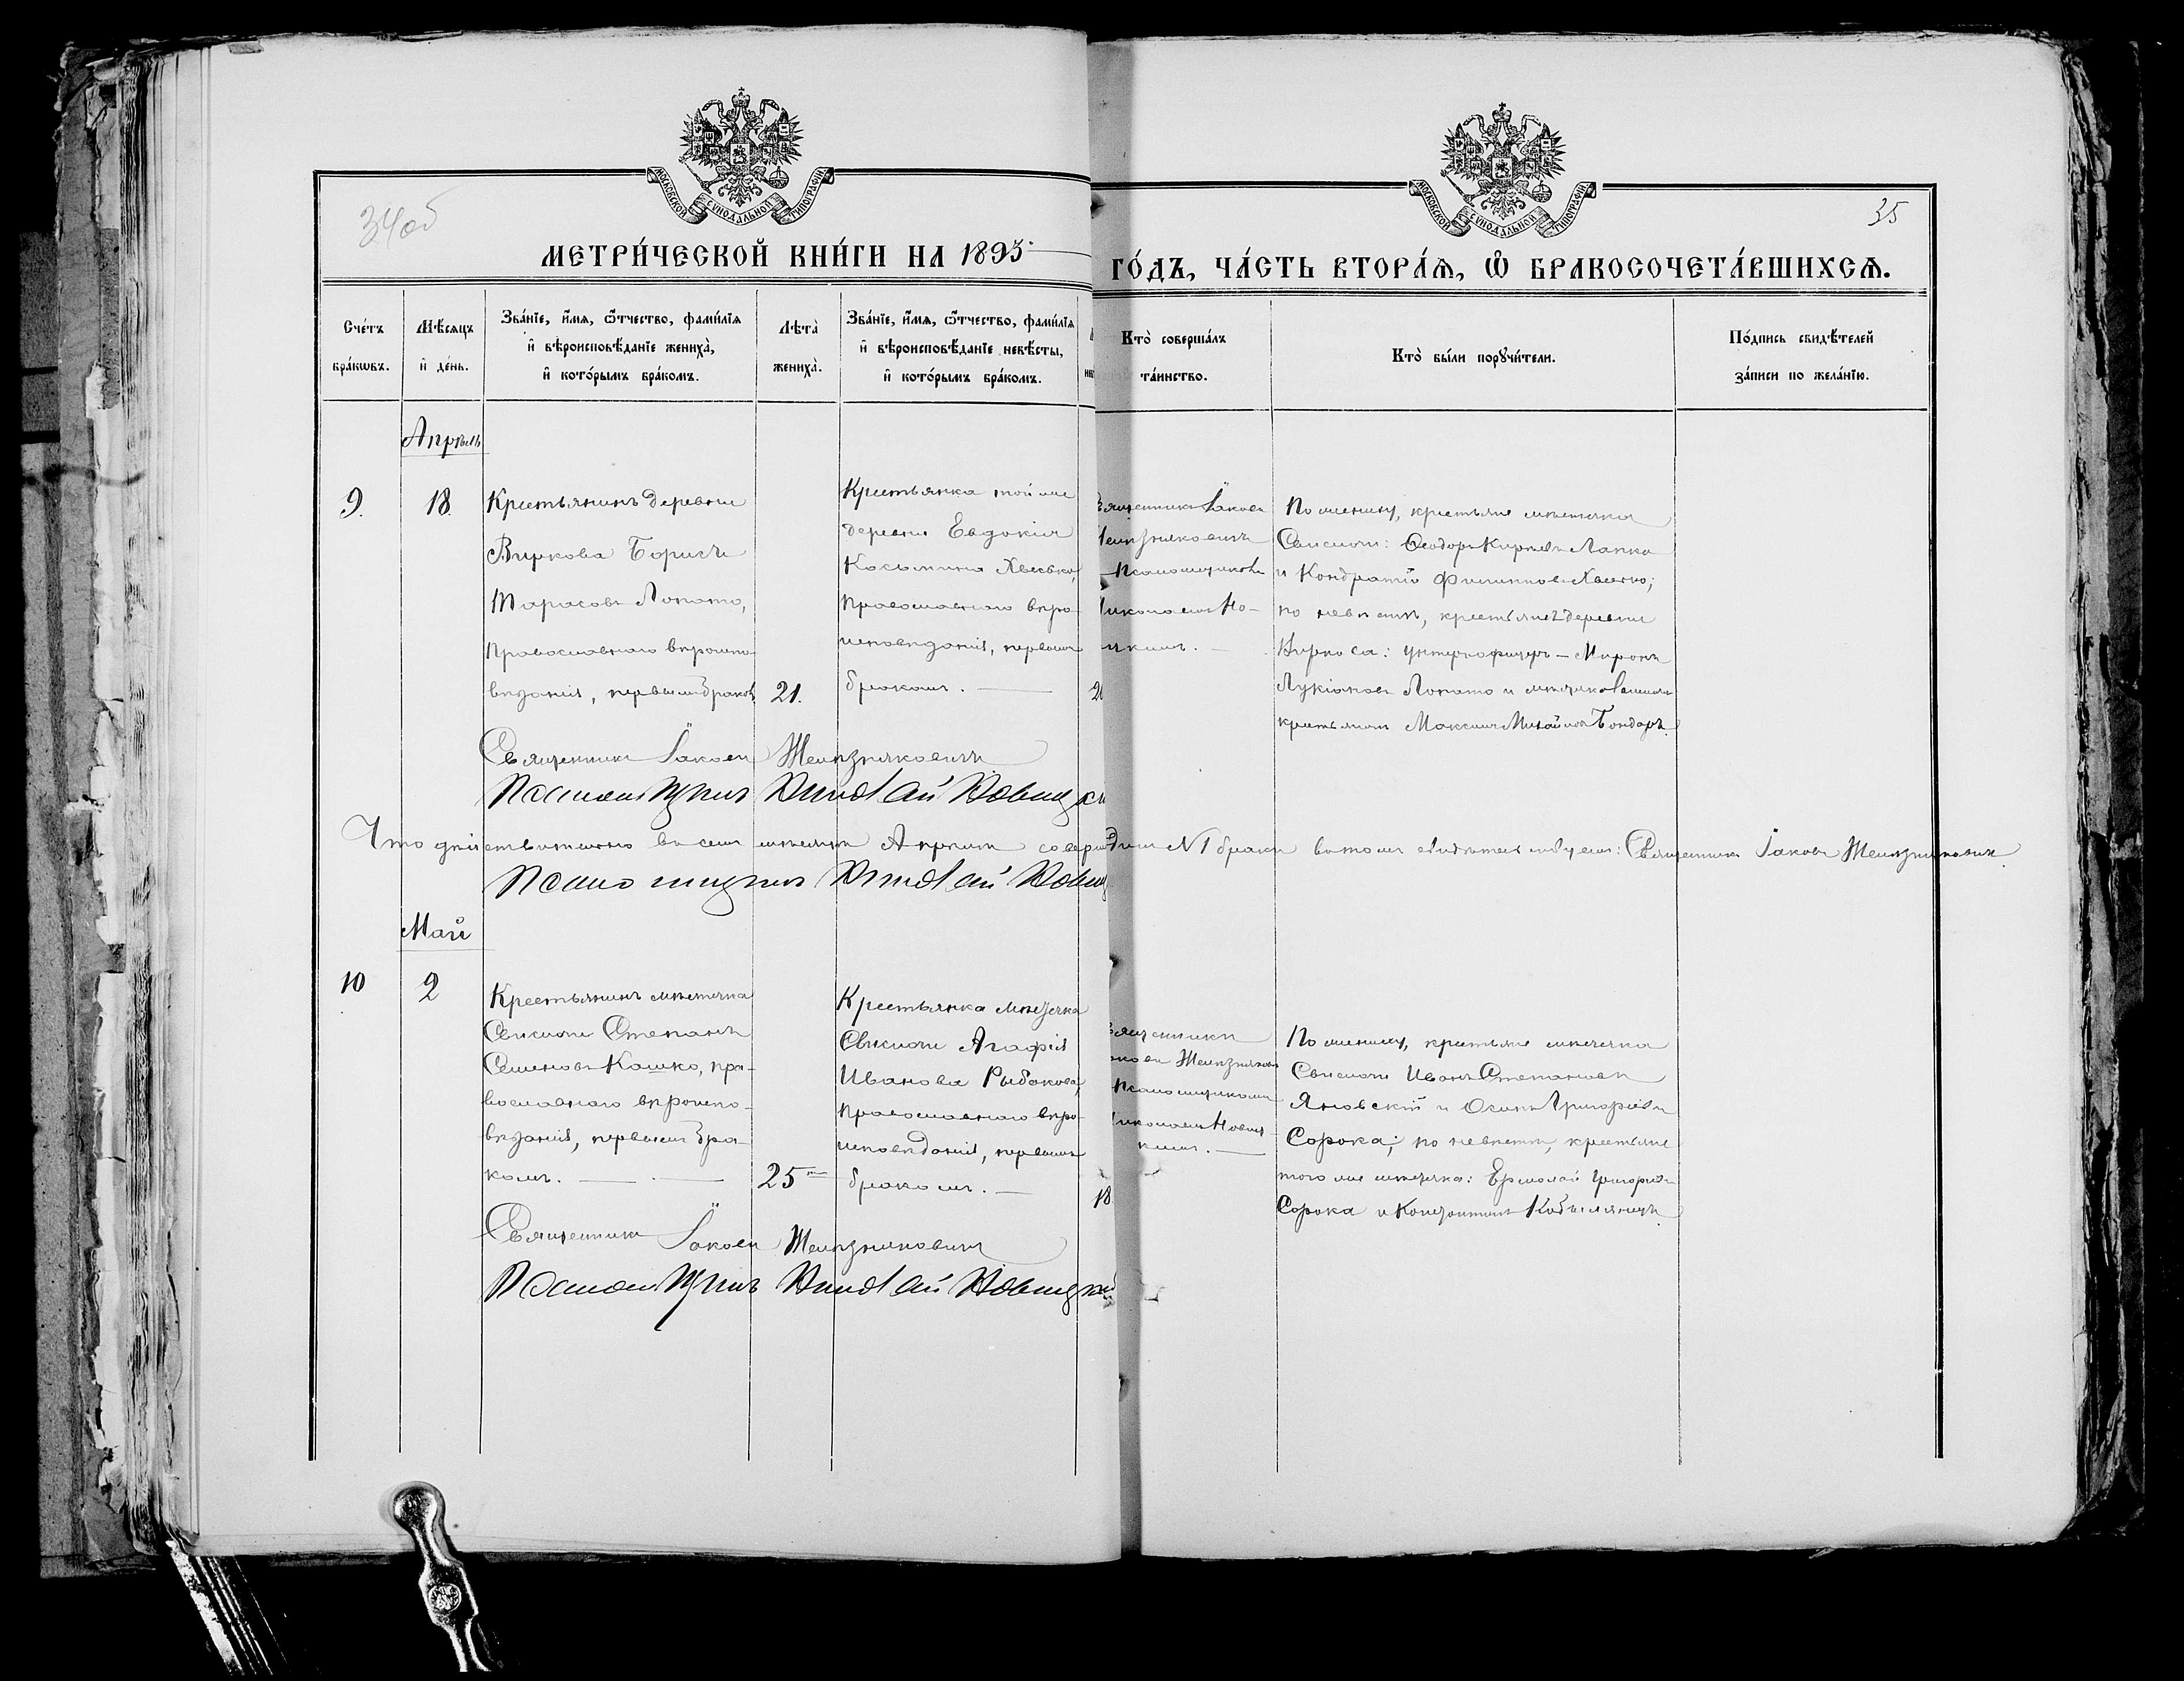 34об
35
МОСКОВСКОЙ СУНОДАЛЬНОЙ ТИПОГРАФІИ
МОСКОВСКОЙ СУНОДАЛЬНОЙ ТИПОГРАФІИ
МЕТРИ́ЧЕСКОЙ КНИ́ГИ НА 1895
ГО́ДЪ, ЧА́СТЬ ВТОРА́Ѧ, Ѽ БРАКОСОЧЕТА́ВШИХСѦ.
Сче́тъ
бра́кѡвъ.
Мѣ́сѧцъ
и҆ де́нь.
Зва́нїе, и҆́мѧ, ѻ҆́тчество, фами́лїѧ
и҆ вѣроисповѣ́данїе жениха̀,
и҆ кото́рымъ бра́комъ.
Лѣта̀
жениха̀.
Зва́нїе, и҆́мѧ, ѻ҆́тчество, фами́лїѧ
и҆ вѣроисповѣ́данїе невѣ́сты,
и҆ кото́рымъ бра́комъ.
Кто̀ соверша́лъ
та́инство.
Кто̀ бы́ли порꙋчи́тели.
По́дпись свидѣ́телей
за́писи по жела́нїю.
Апрѣль
9.
18.
Крестьянинъ деревни
Виркова Борисъ
Тарасовъ Лопато,
православнаго вѣроиспо-
вѣданія, первымъ бракомъ
21.
Крестьянка той же
деревни Евдокія
Косьмина Хвесько,
православнаго вѣро-
исповѣданія, первымъ
бракомъ.
Священникъ Іаковъ
Желѣзняковичъ
Псаломщикомъ
Николаемъ Но-
По жениху, крестьяне мѣстечка
Свислочи: Ѳеодоръ Лапко
и Кондратій Филипповъ Хвесько;
по невѣстѣ, крестьяне деревни
Виркова: унтерофицеръ — Миронъ
Лукіановъ Лопато и мѣстечка Свислочи
крестьянинъ Максимъ Михайловъ Бондарь.
Священникъ Іаковъ Желѣзняковичъ
Псаломщикъ Николай Новицкій
Что дѣйствительно въ семъ мѣсяцѣ Апрѣлѣ совершенъ №1 бракъ въ томъ свидѣтельствуемъ: Священникъ Іаковъ Желѣзняковичъ.
Псаломщикъ Николай Новиц
Май
10
2
Крестьянинъ мѣстечка
Свислочи Степанъ
Семеновъ Кошко, пра-
вославнаго вѣроиспо-
вѣданія, первымъ бра-
комъ.
25
Крестьянка мѣстечка
Свислочи Агафія
Иванова Рыбакова,
православнаго вѣро-
исповѣданія, первымъ
бракомъ.
18
Священникъ
Іаковъ Желѣзняковичъ
Псаломщикомъ
Николаемъ Новиц-
кимъ.
По жениху, крестьяне мѣстечка
Свислочи Иванъ Степановъ
Яновскій и Осипъ Григорьевъ
Сорока; по невѣстѣ, крестьяне
того же мѣстечка: Ермолай Григорьевъ
Сорока и Константинъ Кобылянецъ.
Священникъ Іаковъ Желѣзняковичъ
Псаломщикъ Николай Новицкій